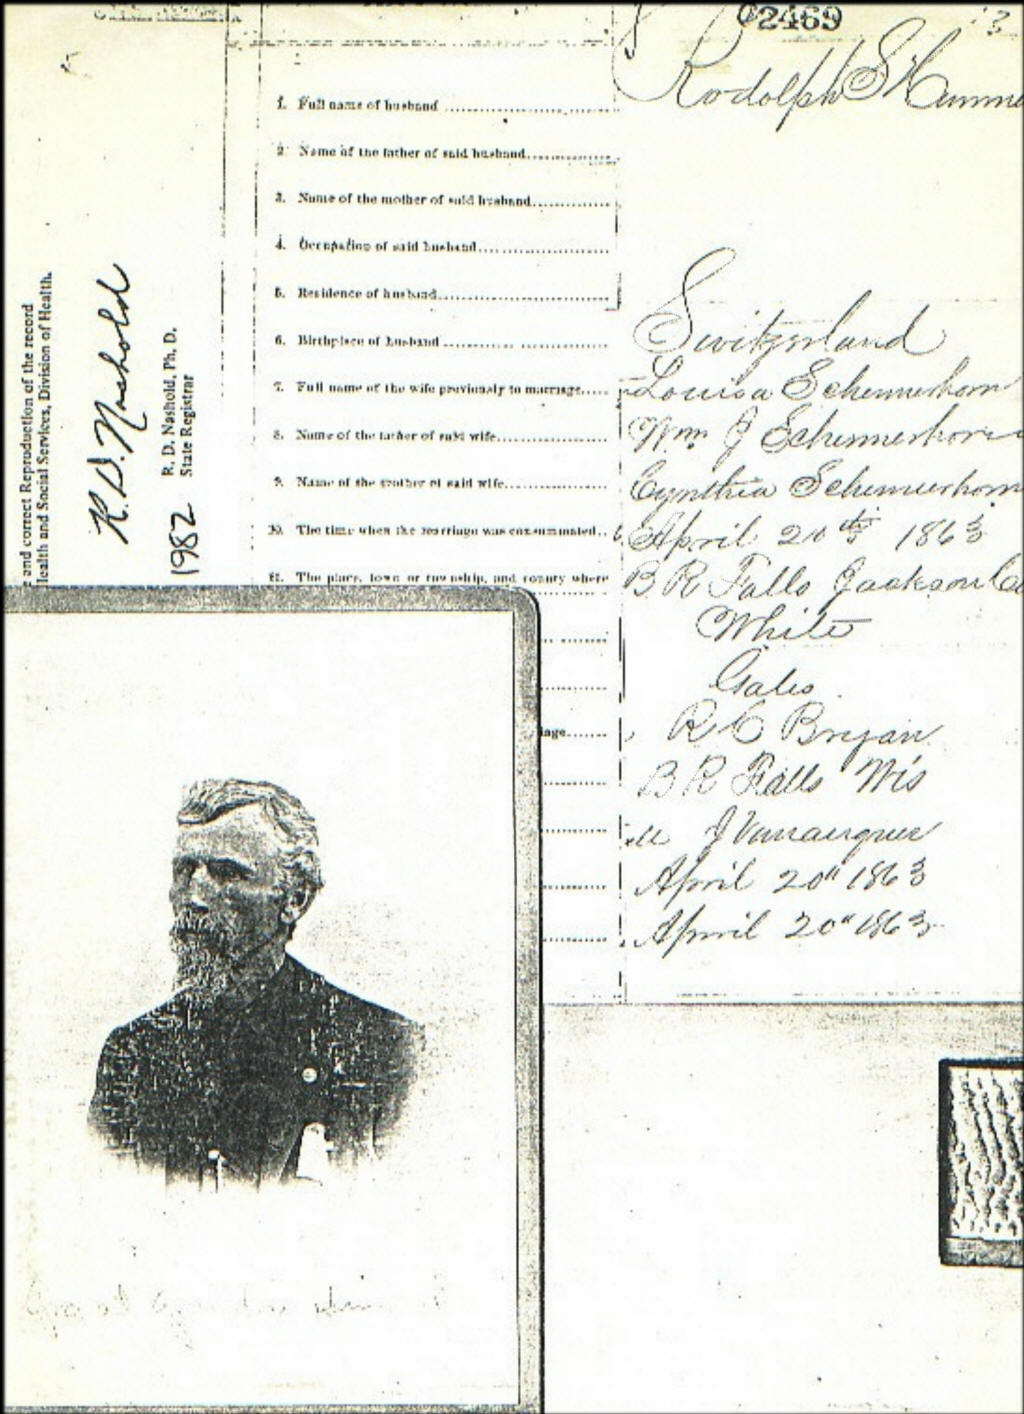 02469
Rodolph S
1. Full name of husband
2. Name of the father of said husband
3. Name of the mother of said husband
4. Occupation of said husband
5. Residence of husband
6. Birthplace of husband Switzerland
7. Full name of the wife previously to marriage Louisa Schermerhorn
8. Name of the father of said wife Wm J Schermerhorn
9. Name of the mother of said wife Cynthia Schermerhorn
10. The time when the marriage was consummated April 20th 1863
11. The place, town or township, and county where B R Falls Jackson Co
White
R C Bryan
B R Falls Wis
J
April 20" 1863
April 20" 1863
and correct Reproduction of the record
Health and Social Services, Division of Health.
R. D. Nashold
R. D. Nashold, Ph. D.
State Registrar
1982